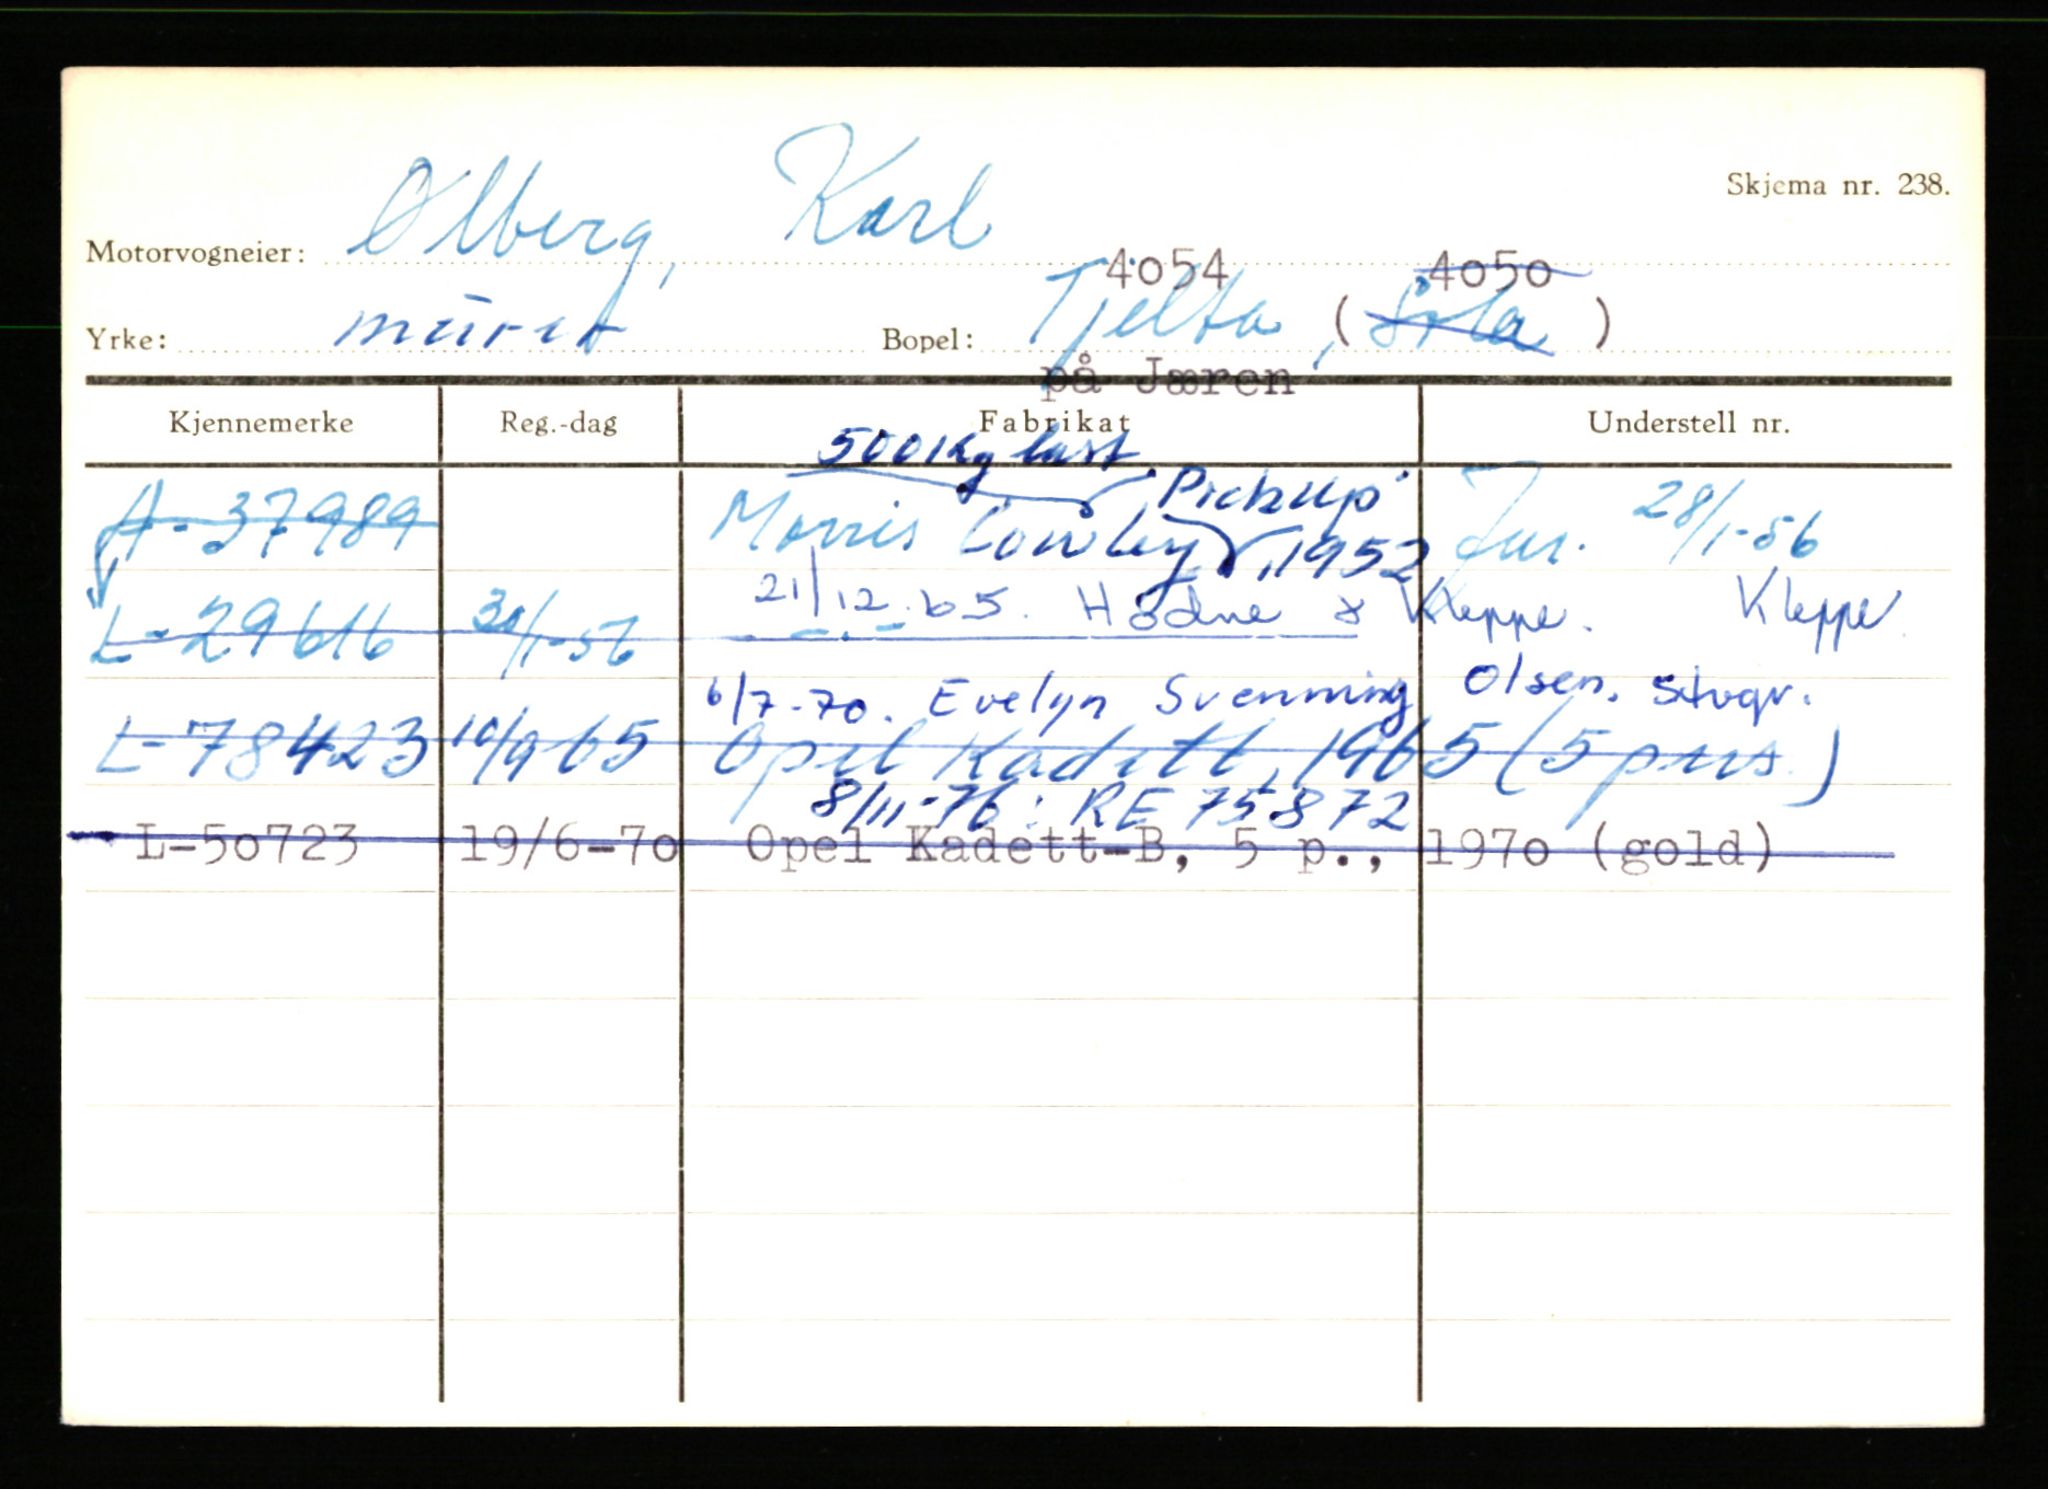 Skjema nr. 238.
Motorvogneier: Ølberg, Karl
4054 4050
Yrke: murer Bopel: Tjelta, (Sola)
på Jæren
Kjennemerke Reg.-dag Fabrikat Understell nr.
500 kg last. "Pickup"
A-37989 Morris Cowley, 1952 28/1-56
21/12.65. Hodne & Kleppe. Kleppe
L-29616 30/1-56
6/7-70. Evelyn Svenning Olsen. Stvgr.
L-78423 10/9 65 Opel Kadett, 1965 (5 pers.)
8/11-76: RE 75872
L-50723 19/6-70 Opel Kadett-B, 5 p., 1970 (gold)